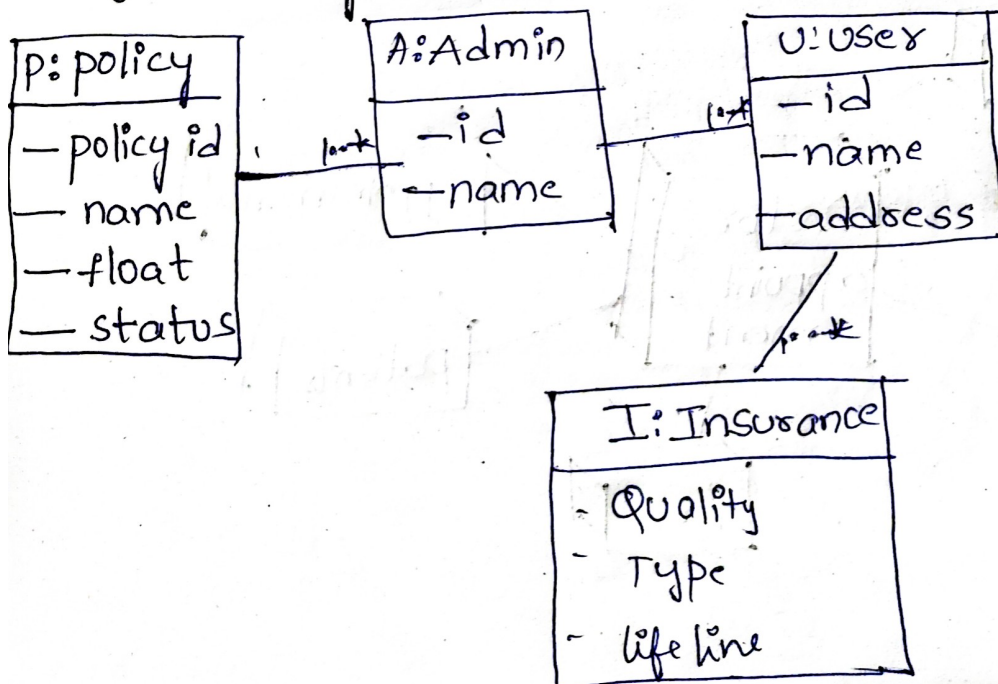 P: policy
- policy id
- name
- float
- status
A: Admin
- id
- name
U: User
- id
- name
- address
1..*
1..*
1..*
I: Insurance
- Quality
- Type
- life line